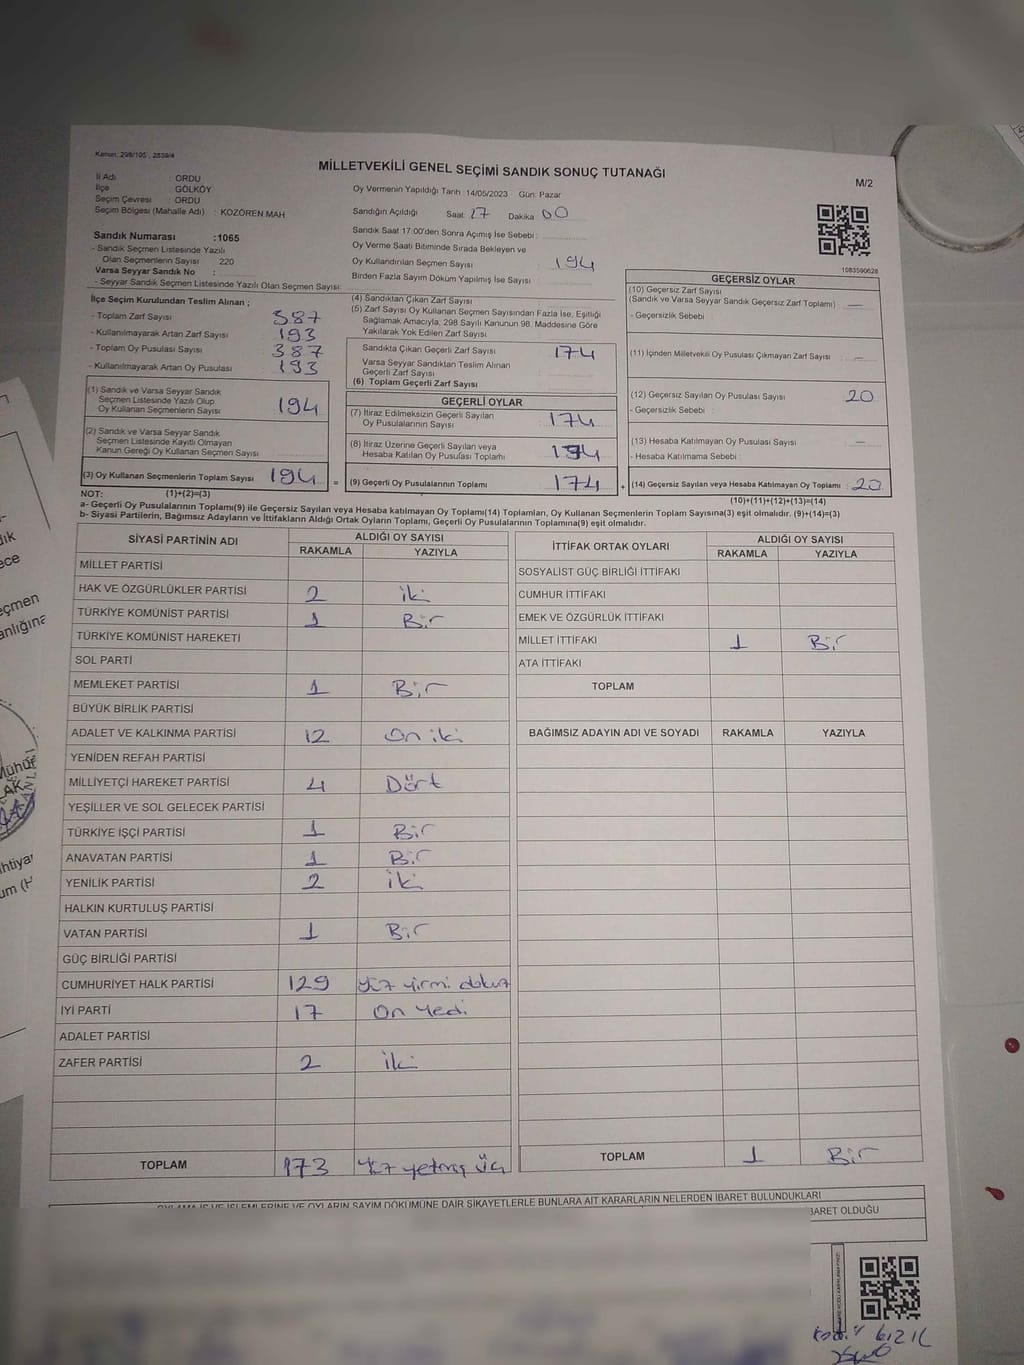 Kanun: 298/105 , 2839/4
MİLLETVEKİLİ GENEL SEÇİMİ SANDIK SONUÇ TUTANAĞI
M/2
İl Adı : ORDU
İlçe : GÖLKÖY
Seçim Çevresi : ORDU
Seçim Bölgesi (Mahalle Adı) : KOZÖREN MAH
Oy Vermenin Yapıldığı Tarih :14/05/2023 Gün: Pazar
Sandığın Açıldığı Saat: 17 Dakika 00
Sandık Saat 17.00'den Sonra Açımış İse Sebebi :
Oy Verme Saati Bitiminde Sırada Bekleyen ve
Oy Kullandırılan Seçmen Sayısı 194
Birden Fazla Sayım Döküm Yapılmış İse Sayısı :
1083590628
Sandık Numarası :1065
- Sandık Seçmen Listesinde Yazılı
Olan Seçmenlerin Sayısı 220
Varsa Seyyar Sandık No :
- Seyyar Sandık Seçmen Listesinde Yazılı Olan Seçmen Sayısı:
İlçe Seçim Kurulundan Teslim Alınan ;
- Toplam Zarf Sayısı 387
- Kullanılmayarak Artan Zarf Sayısı 193
- Toplam Oy Pusulası Sayısı 387
- Kullanılmayarak Artan Oy Pusulası 193
(1) Sandık ve Varsa Seyyar Sandık
Seçmen Listesinde Yazılı Olup
Oy Kullanan Seçmenlerin Sayısı 194
(2) Sandık ve Varsa Seyyar Sandık
Seçmen Listesinde Kayıtlı Olmayan
Kanun Gereği Oy Kullanan Seçmen Sayısı
(3) Oy Kullanan Seçmenlerin Toplam Sayısı 194 =
(4) Sandıktan Çıkan Zarf Sayısı
(5) Zarf Sayısı Oy Kullanan Seçmen Sayısından Fazla İse, Eşitliği
Sağlamak Amacıyla, 298 Sayılı Kanunun 98. Maddesine Göre
Yakılarak Yok Edilen Zarf Sayısı
Sandıkta Çıkan Geçerli Zarf Sayısı 174
Varsa Seyyar Sandıktan Teslim Alınan
Geçerli Zarf Sayısı
(6) Toplam Geçerli Zarf Sayısı
GEÇERLİ OYLAR
(7) İtiraz Edilmeksizin Geçerli Sayılan
Oy Pusulalarının Sayısı 174
(8) İtiraz Üzerine Geçerli Sayılan veya
Hesaba Katılan Oy Pusulası Toplamı
(9) Geçerli Oy Pusulalarının Toplamı 174 +
GEÇERSİZ OYLAR
(10) Geçersiz Zarf Sayısı
(Sandık ve Varsa Seyyar Sandık Geçersiz Zarf Toplamı) —
- Geçersizlik Sebebi
(11) İçinden Milletvekili Oy Pusulası Çıkmayan Zarf Sayısı —
(12) Geçersiz Sayılan Oy Pusulası Sayısı 20
- Geçersizlik Sebebi :
(13) Hesaba Katılmayan Oy Pusulası Sayısı —
- Hesaba Katılmama Sebebi
(14) Geçersiz Sayılan veya Hesaba Katılmayan Oy Toplamı : 20
NOT: (1)+(2)=(3)
(10)+(11)+(12)+(13)=(14)
a- Geçerli Oy Pusulalarının Toplamı(9) ile Geçersiz Sayılan veya Hesaba katılmayan Oy Toplamı(14) Toplamları, Oy Kullanan Seçmenlerin Toplam Sayısına(3) eşit olmalıdır. (9)+(14)=(3)
b- Siyasi Partilerin, Bağımsız Adayların ve İttifakların Aldığı Ortak Oyların Toplamı, Geçerli Oy Pusulalarının Toplamına(9) eşit olmalıdır.
SİYASİ PARTİNİN ADI ALDIĞI OY SAYISI
RAKAMLA YAZIYLA
MİLLET PARTİSİ
HAK VE ÖZGÜRLÜKLER PARTİSİ 2 iki
TÜRKİYE KOMÜNİST PARTİSİ 1 Bir
TÜRKİYE KOMÜNİST HAREKETİ
SOL PARTİ
MEMLEKET PARTİSİ 1 Bir
BÜYÜK BİRLİK PARTİSİ
ADALET VE KALKINMA PARTİSİ 12 On iki
YENİDEN REFAH PARTİSİ
MİLLİYETÇİ HAREKET PARTİSİ 4 Dört
YEŞİLLER VE SOL GELECEK PARTİSİ
TÜRKİYE İŞÇİ PARTİSİ 1 Bir
ANAVATAN PARTİSİ 1 Bir
YENİLİK PARTİSİ 2 iki
HALKIN KURTULUŞ PARTİSİ
VATAN PARTİSİ 1 Bir
GÜÇ BİRLİĞİ PARTİSİ
CUMHURİYET HALK PARTİSİ 129 yüz yirmi dokuz
İYİ PARTİ 17 On Yedi
ADALET PARTİSİ
ZAFER PARTİSİ 2 iki
TOPLAM 173 Yüz yetmiş üç
İTTİFAK ORTAK OYLARI ALDIĞI OY SAYISI
RAKAMLA YAZIYLA
SOSYALİST GÜÇ BİRLİĞİ İTTİFAKI
CUMHUR İTTİFAKI
EMEK VE ÖZGÜRLÜK İTTİFAKI
MİLLET İTTİFAKI 1 Bir
ATA İTTİFAKI
TOPLAM
BAĞIMSIZ ADAYIN ADI VE SOYADI RAKAMLA YAZIYLA
TOPLAM 1 Bir
OYLAMA İŞ VE İŞLEMLERİNE VE OYLARIN SAYIM DÖKÜMÜNE DAİR ŞİKAYETLERLE BUNLARA AİT KARARLARIN NELERDEN İBARET BULUNDUKLARI
BARET OLDUĞU